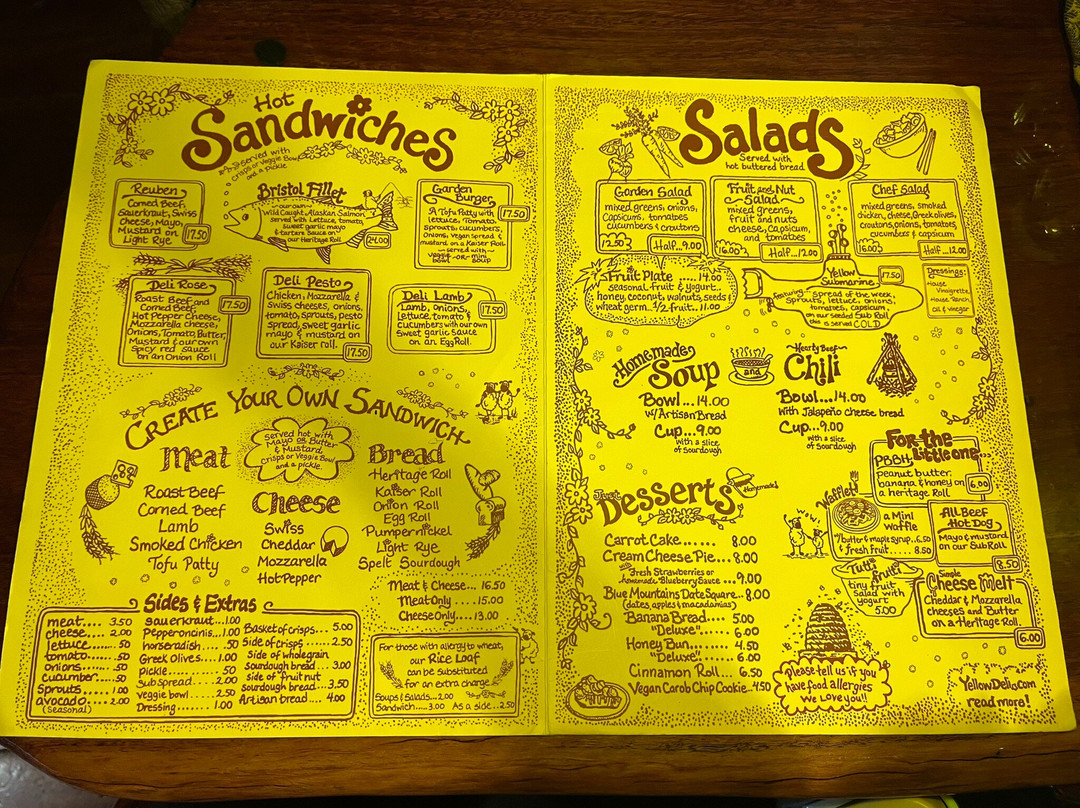 Hot
Sandwiches
served with
crisps or Veggie Bowl
and a pickle
Reuben
Corned Beef,
Sauerkraut, Swiss
Cheese, Mayo,
Mustard on
Light Rye
17.50
Bristol Fillet
our own
Wild Caught, Alaskan Salmon
served with Lettuce, tomato,
sweet garlic mayo
& tartare Sauce on
our Heritage Roll
24.00
Garden
Burger
A Tofu Patty with
lettuce, Tomato,
sprouts, cucumbers,
Onions, Vegan Spread &
mustard on a Kaiser Roll
served with
veggie -or- mini
bowl soup
17.50
Deli Rose
Roast Beef and
Corned Beef,
Hot Pepper Cheese,
Mozzarella cheese,
Onions, Tomato, Butter,
Mustard & our own
Spicy red sauce
on an Onion Roll
17.50
Deli Pesto
Chicken, Mozzarella &
Swiss cheeses, onions,
tomato, sprouts, pesto
spread, sweet garlic
mayo & mustard on
our Kaiser roll.
17.50
Deli Lamb
Lamb, onions,
Lettuce, tomato &
cucumbers with our own
sweet garlic sauce
on an Egg Roll.
17.50
CREATE YOUR OWN SANDWICH
served hot with
Mayo or Butter
& Mustard
Crisps or Veggie Bowl
and a pickle.
Meat
Roast Beef
Corned Beef
Lamb
Smoked Chicken
Tofu Patty
Cheese
Swiss
Cheddar
Mozzarella
Hot Pepper
Bread
Heritage Roll
Kaiser Roll
Onion Roll
Egg Roll
Pumpernickel
Light Rye
Spelt Sourdough
Meat & Cheese... 16.50
Meat Only .... 15.00
Cheese Only... 13.00
Sides & Extras
meat.... 3.50
cheese.... 2.00
lettuce...... .50
tomato..... .50
onions...... .50
cucumber... .50
sprouts.... 1.00
avocado.... 2.00
(seasonal)
sauerkraut...1.00
Pepperoncinis...1.00
horseradish .....50
Greek olives....1.00
pickle ..... .50
sub spread.... 2.00
veggie bowl.... 2.50
Dressing....... 1.00
Basket of crisps... 5.00
Side of crisps.... 2.50
Side of wholegrain
sourdough bread.... 3.00
side of fruit nut
sourdough bread....3.50
Artisan bread .... 4.00
For those with allergy to wheat,
our Rice Loaf
can be substituted
for an extra charge
Soups & Salads...2.00
Sandwich....3.00 As a side..2.50
Salads
Served with
hot buttered bread
Garden Salad
mixed greens, onions,
Capsicums, tomatoes
cucumbers & croutons
12.50
Half...9.00
Fruit and Nut
Salad
mixed greens,
fruit and nuts
cheese, Capsicum,
and tomatoes
16.00
Half...12.00
Chef Salad
mixed greens, smoked
chicken, cheese, Greek olives,
croutons, onions, tomatoes,
cucumbers & capsicum
16.00
Half...12.00
Fruit Plate ..... 14.00
seasonal fruit & yogurt..
honey, coconut, walnuts, seeds &
wheat germ...1/2 fruit.. 11.00
Yellow
Submarine
17.50
featuring...
spread of the week,
Sprouts, lettuce, onions,
tomatoes, capsicum,
on our seeded Sub Roll
this is served COLD
Dressings:
House
Vinaigrette,
House Ranch,
Oil & Vinegar
Homemade
Soup
and
Hearty Beef
Chili
Bowl...14.00
w/Artisan Bread
Cup...9.00
with a slice
of sourdough
Bowl...14.00
With Jalapeño cheese bread
Cup...9.00
with a slice
of Sourdough
For the
Little one...
PBBH
peanut butter,
banana & honey on
a heritage Roll
6.00
Waffles
a Mini
Waffle
w/butter & maple syrup..6.50
& fresh fruit..... 8.50
All Beef
Hot Dog
Mayo & mustard
on our Sub Roll
8.50
Tutti frutti
tiny fruit
salad with
yogurt
5.00
Single
Cheese Melt
Cheddar & Mozzarella
cheeses and Butter
on a Heritage Roll
6.00
Desserts
Homemade!
Carrot Cake...... 8.00
Cream Cheese Pie.... 8.00
with Fresh Strawberries or
homemade Blueberry Sauce ...9.00
Blue Mountains Date Square...8.00
(dates, apples & macadamias)
Banana Bread.... 5.00
"Deluxe".... 6.00
Honey Bun.... 4.50
"Deluxe".. 6.00
Cinnamon Roll... 6.50
Vegan Carob Chip Cookie...4.50
please tell us if you
have food allergies
We Love you!!
YellowDeli.com
read more!